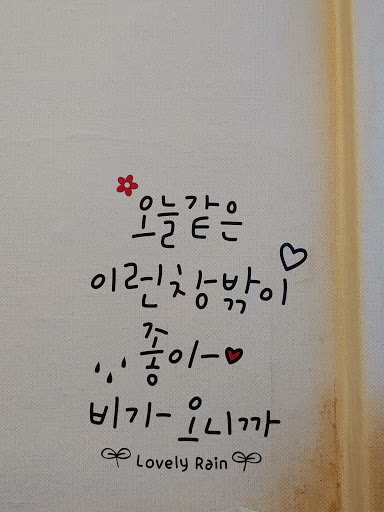 오늘같은
이런 창밖이
좋아
비가 오니까
Lovely Rain